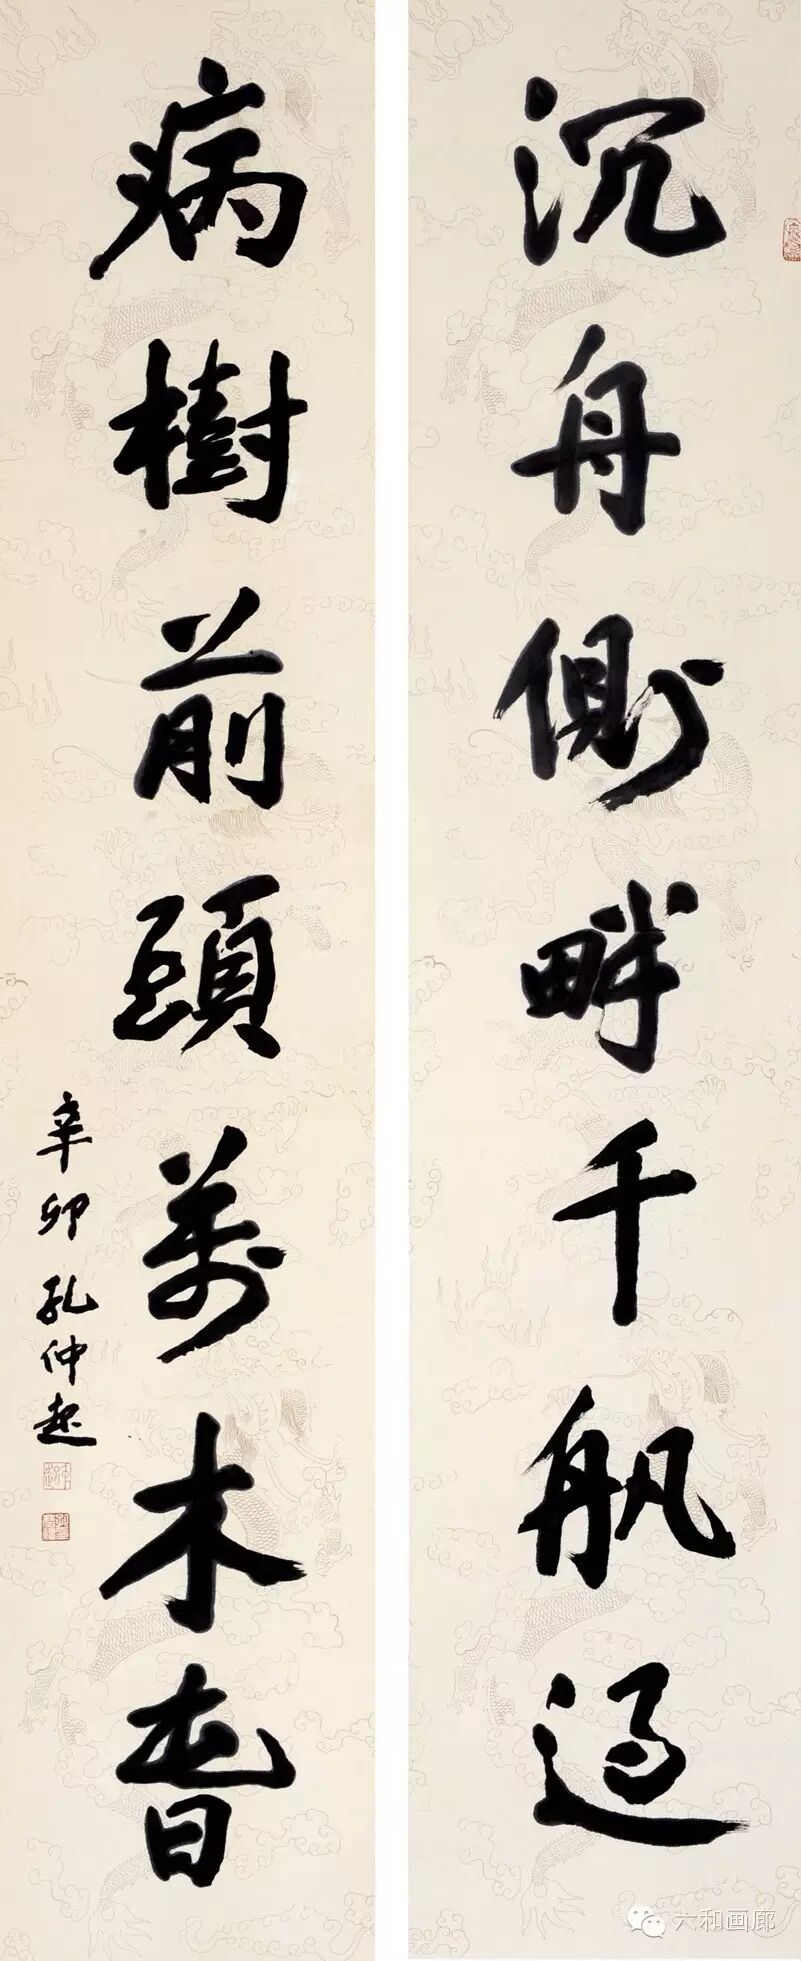 沉舟側畔千帆過
病樹前頭萬木春
辛卯孔仲起
六和画廊